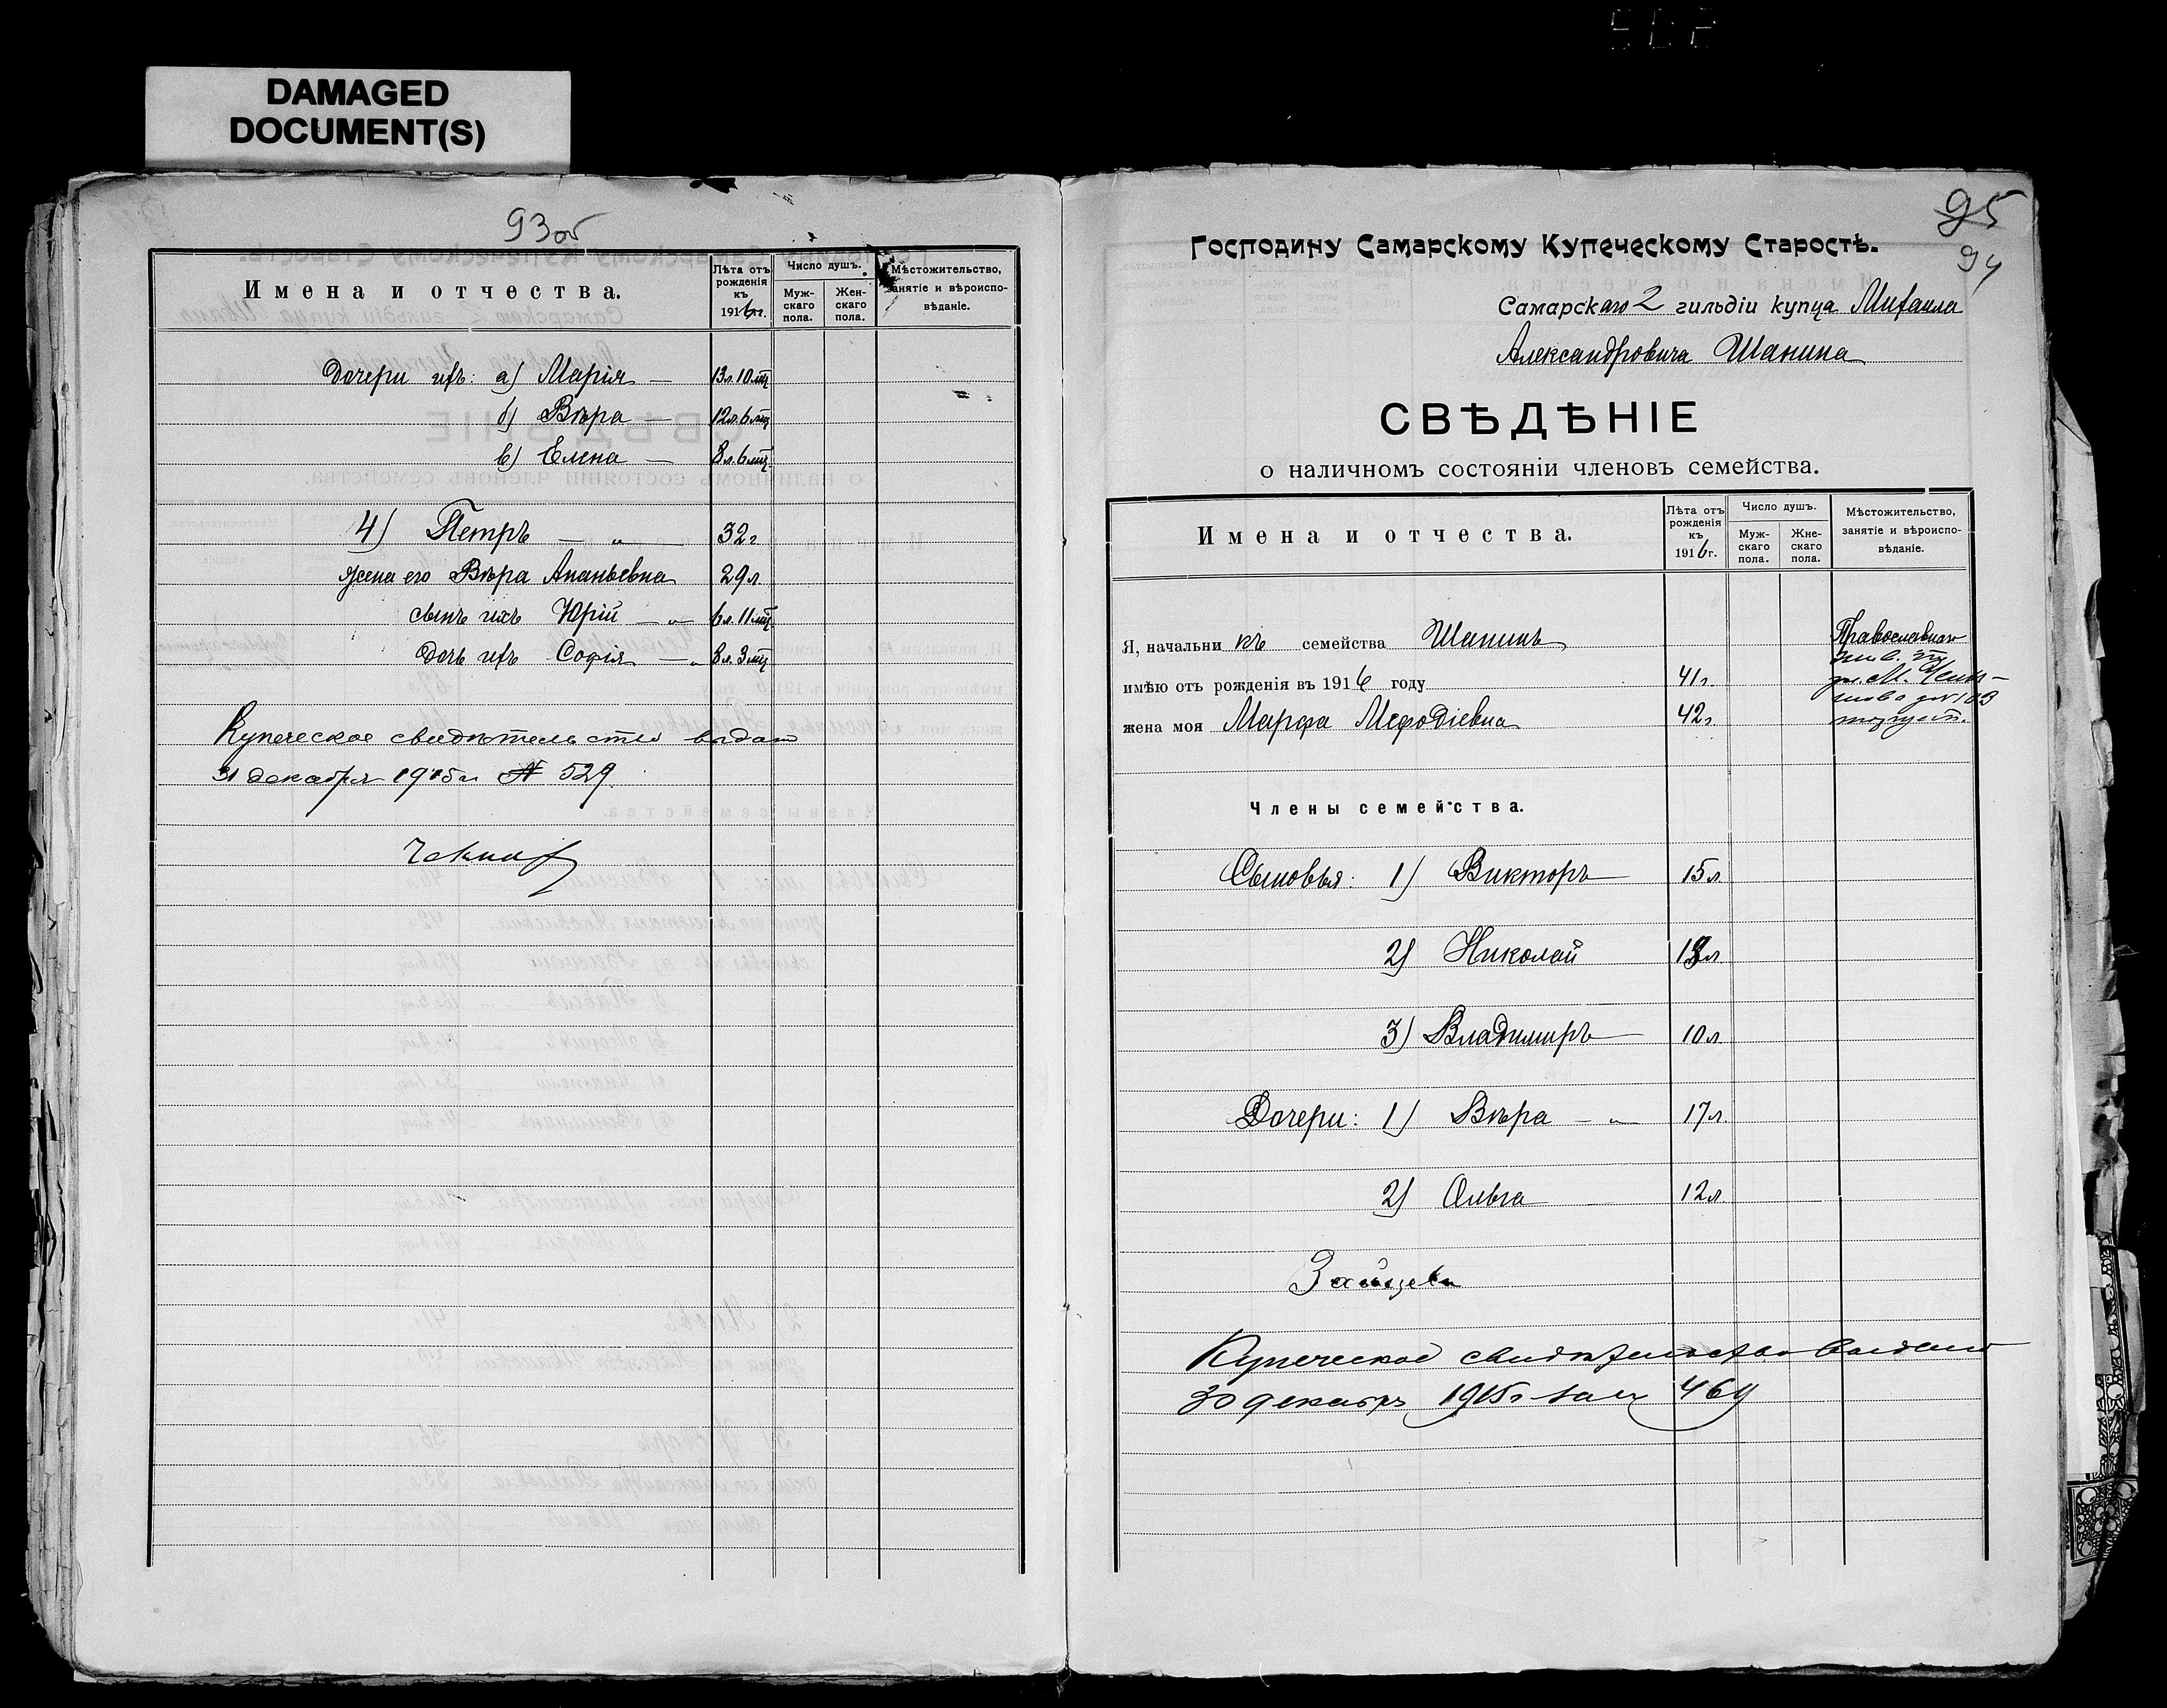 DAMAGED
DOCUMENT(S)
93об
Имена и отчества.
Лѣта отъ рожденія къ 1916 г.
Число душъ.
Муж-скаго пола.
Жен-скаго пола.
Мѣстожительство, занятіе и вѣроиспо-вѣданіе.
Дочери ихъ: а) Марія — 13л.10мц
б) Вѣра — 12л.6мц
в) Елена — 8л.6мц.
4) Петръ — „ — 32г
жена его Вѣра Ананьевна 29л
сынъ ихъ Юрій — „ 6л.11мц.
дочь ихъ Софія — „ 8л.3мц
Купеческое свидѣтельство выдано
31 декабря 1915 г № 529.
95
94
Господину Самарскому Купеческому Старостѣ.
Самарскаго 2 гильдіи купца Михаила
Александровича Шанина
СВѢДѢНІЕ
о наличномъ состояніи членовъ семейства.
Имена и отчества.
Лѣта отъ рожденія къ 1916 г.
Число душъ.
Муж-скаго пола.
Жне-скаго пола.
Мѣстожительство, занятіе и вѣроиспо-вѣданіе.
Я, начальникъ семейства Шанинъ
Православная
имѣю отъ рожденія въ 1916 году 41г.
жена моя Марфа Мефодіевна 42г.
Члены семейства.
Сыновья: 1) Викторъ — 15л
2) Николай 13л
3) Владимиръ — 10л
Дочери: 1) Вѣра — „ — 17л.
2) Ольга — 12л
Купеческое свидѣтельство выдано
30 декабря 1915 г за № 464